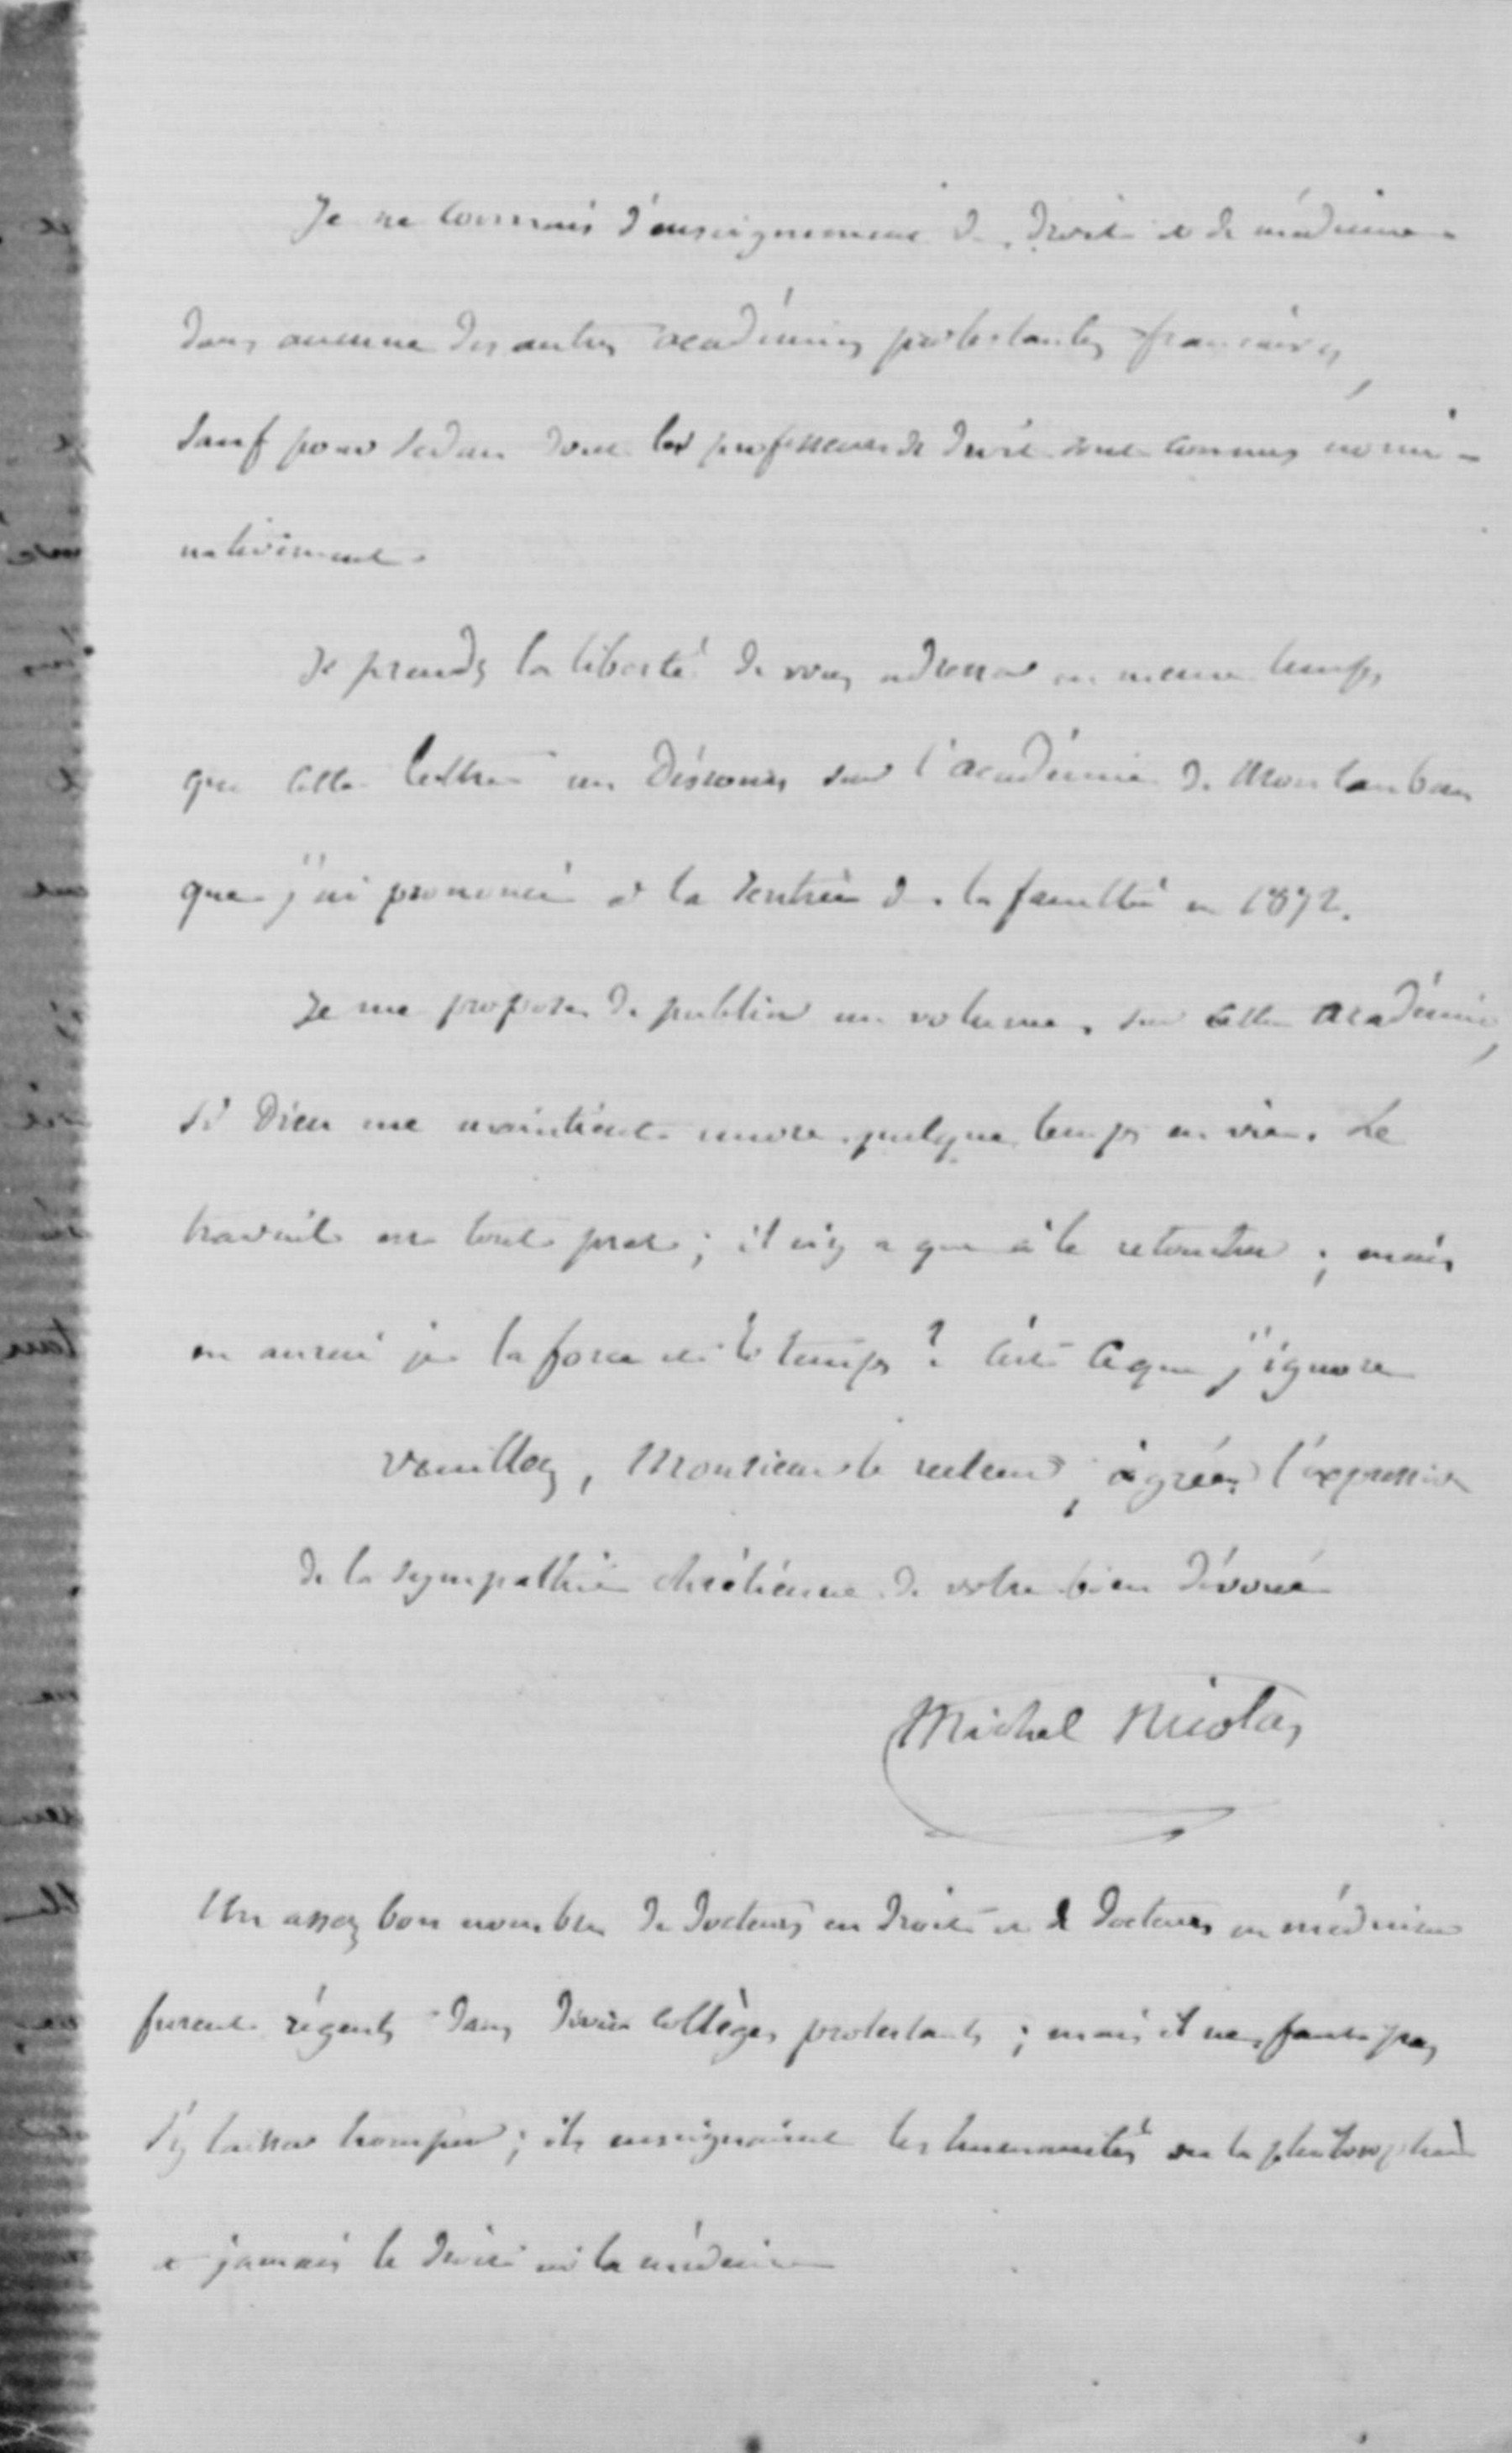 Je ne connais d'enseignement de droit et de médecine
dans aucune des autres académies protestantes françaises,
sauf pour Sedan dont les professeurs de droit sont connus nomi-
nativement.
Je prends la liberté de vous adresser en meme temps
que cette lettre un Discours sur l'académie de Montauban
que j'ai prononcé à la rentrée de la faculté en 1872.
Je me propose de publier un volume sur cette Académie,
si Dieu me maintient encore quelque temps en vie. Le
travail est tout pret ; il n'y a qu'à le retoucher ; mais
en aurai je la force et le temps ? C'est ce que j'ignore
Veuillez, Monsieur le recteur, agréer l'expression
de la sympathie chrétienne de votre bien dévoué
Michel Nicolas
Un assez bon nombre de docteurs en droit et de docteurs en médecine
furent régents dans divers collèges protestants ; mais il ne faut pas
s'y laisser tromper ; ils enseignaient les humanités ou la philosophie
et jamais le droit ni la médecine